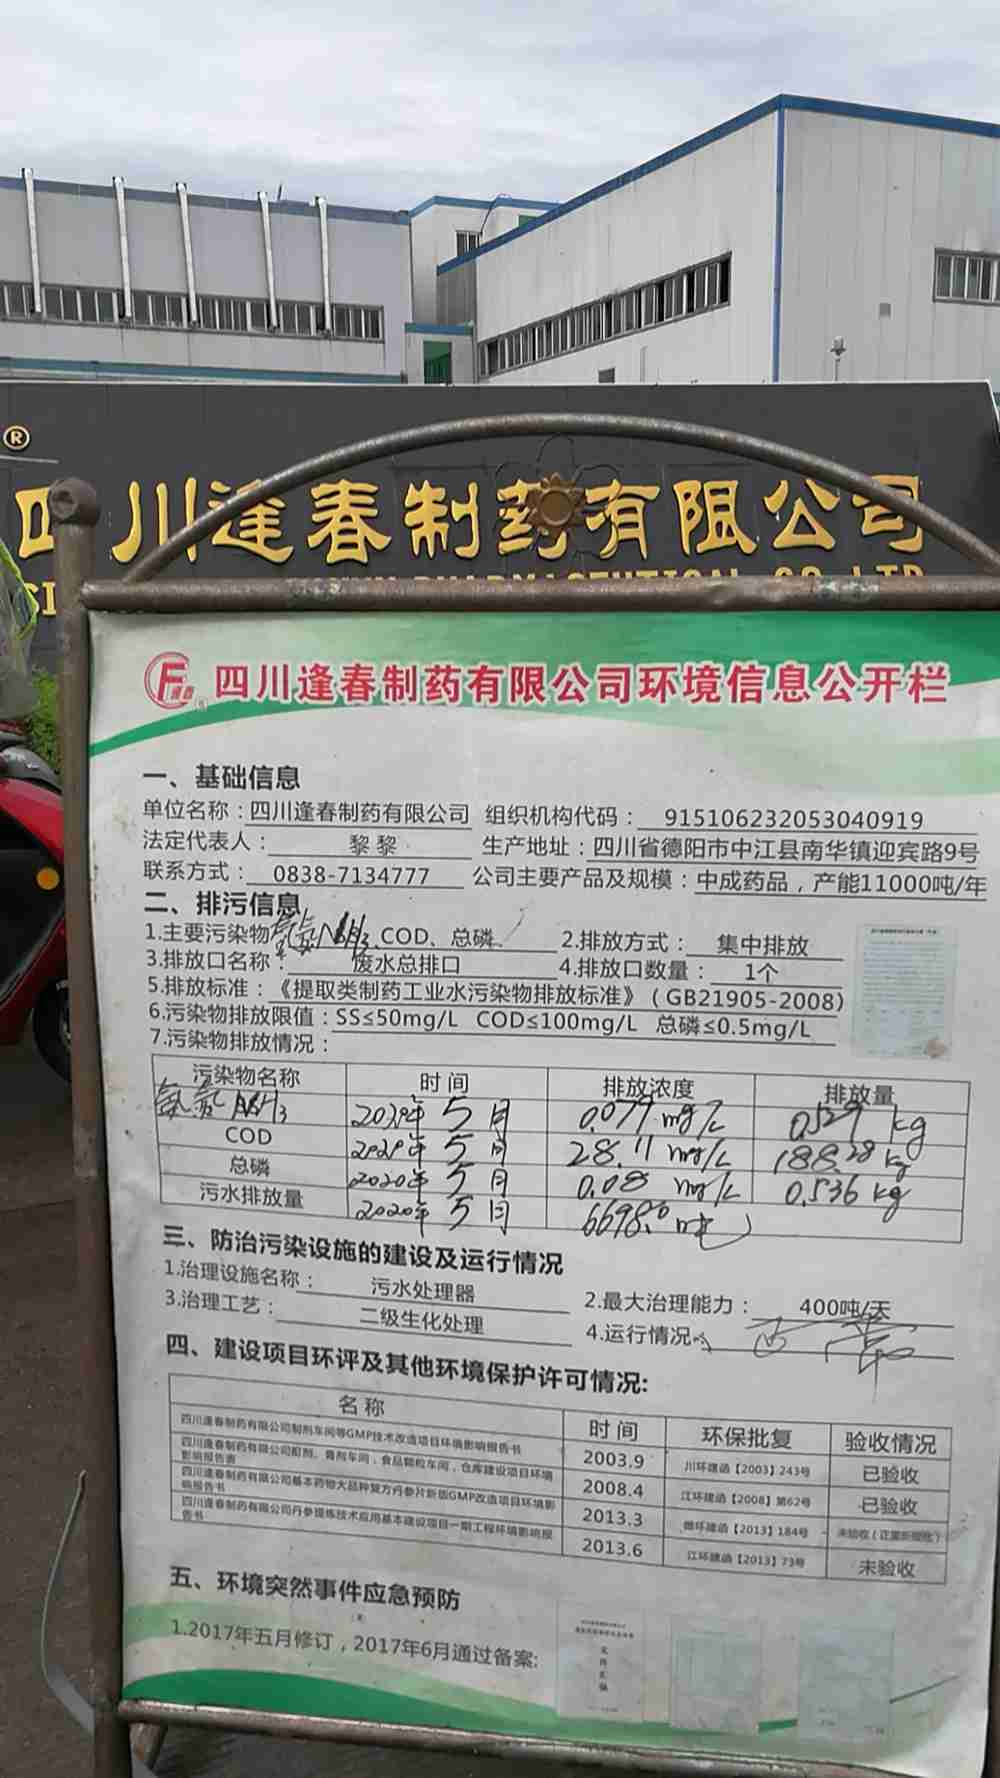 ®
四川逢春制药有限公司
四川逢春制药有限公司环境信息公开栏
一、基础信息
单位名称：四川逢春制药有限公司 组织机构代码： 915106232053040919
法定代表人： 黎黎 生产地址：四川省德阳市中江县南华镇迎宾路9号
联系方式： 0838-7134777 公司主要产品及规模：中成药品，产能11000吨/年
二、排污信息
1.主要污染物 氨氮NH3、COD、总磷 2.排放方式： 集中排放
3.排放口名称： 废水总排口 4.排放口数量： 1个
5.排放标准：《提取类制药工业水污染物排放标准》（GB21905-2008）
6.污染物排放限值：SS≤50mg/L COD≤100mg/L 总磷≤0.5mg/L
7.污染物排放情况：
污染物名称 时间 排放浓度 排放量
氨氮 NH3 2020年 5月 0.079 mg/L 0.529 kg
COD 2020年 5月 28.11 mg/L 188.28 kg
总磷 2020年 5月 0.08 mg/L 0.536 kg
污水排放量 2020年 5月 6698.0 吨
三、防治污染设施的建设及运行情况
1.治理设施名称： 污水处理器 2.最大治理能力： 400吨/天
3.治理工艺： 二级生化处理 4.运行情况： 正常
四、建设项目环评及其他环境保护许可情况:
名称 时间 环保批复 验收情况
四川逢春制药有限公司制剂车间等GMP技术改造项目环境影响报告书 2003.9 川环建函【2003】243号 已验收
四川逢春制药有限公司配剂、膏剂车间，食品颗粒车间，仓库建设项目环境影响报告表 2008.4 江环建函【2008】第62号 已验收
四川逢春制药有限公司基本药物大品种复方丹参片新版GMP改造项目环境影响报告书 2013.3 德环建函【2013】184号 未验收（正重新报批）
四川逢春制药有限公司丹参提炼技术应用基本建设项目一期工程环境影响报告书 2013.6 江环建函【2013】73号 未验收
五、环境突然事件应急预防
1.2017年五月修订，2017年6月通过备案: